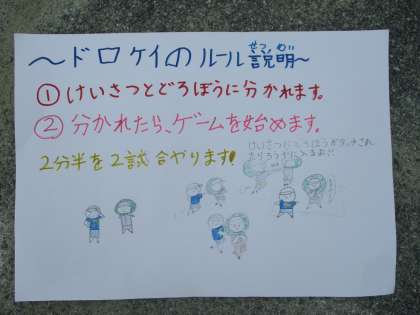 ～ドロケイのルール説明～
せつめい
①けいさつとどろぼうに分かれます。
②分かれたら、ゲームを始めます。
2分半を2試合やります!
けいさつにどろぼうがタッチされ
たらろうやに入るよ!!